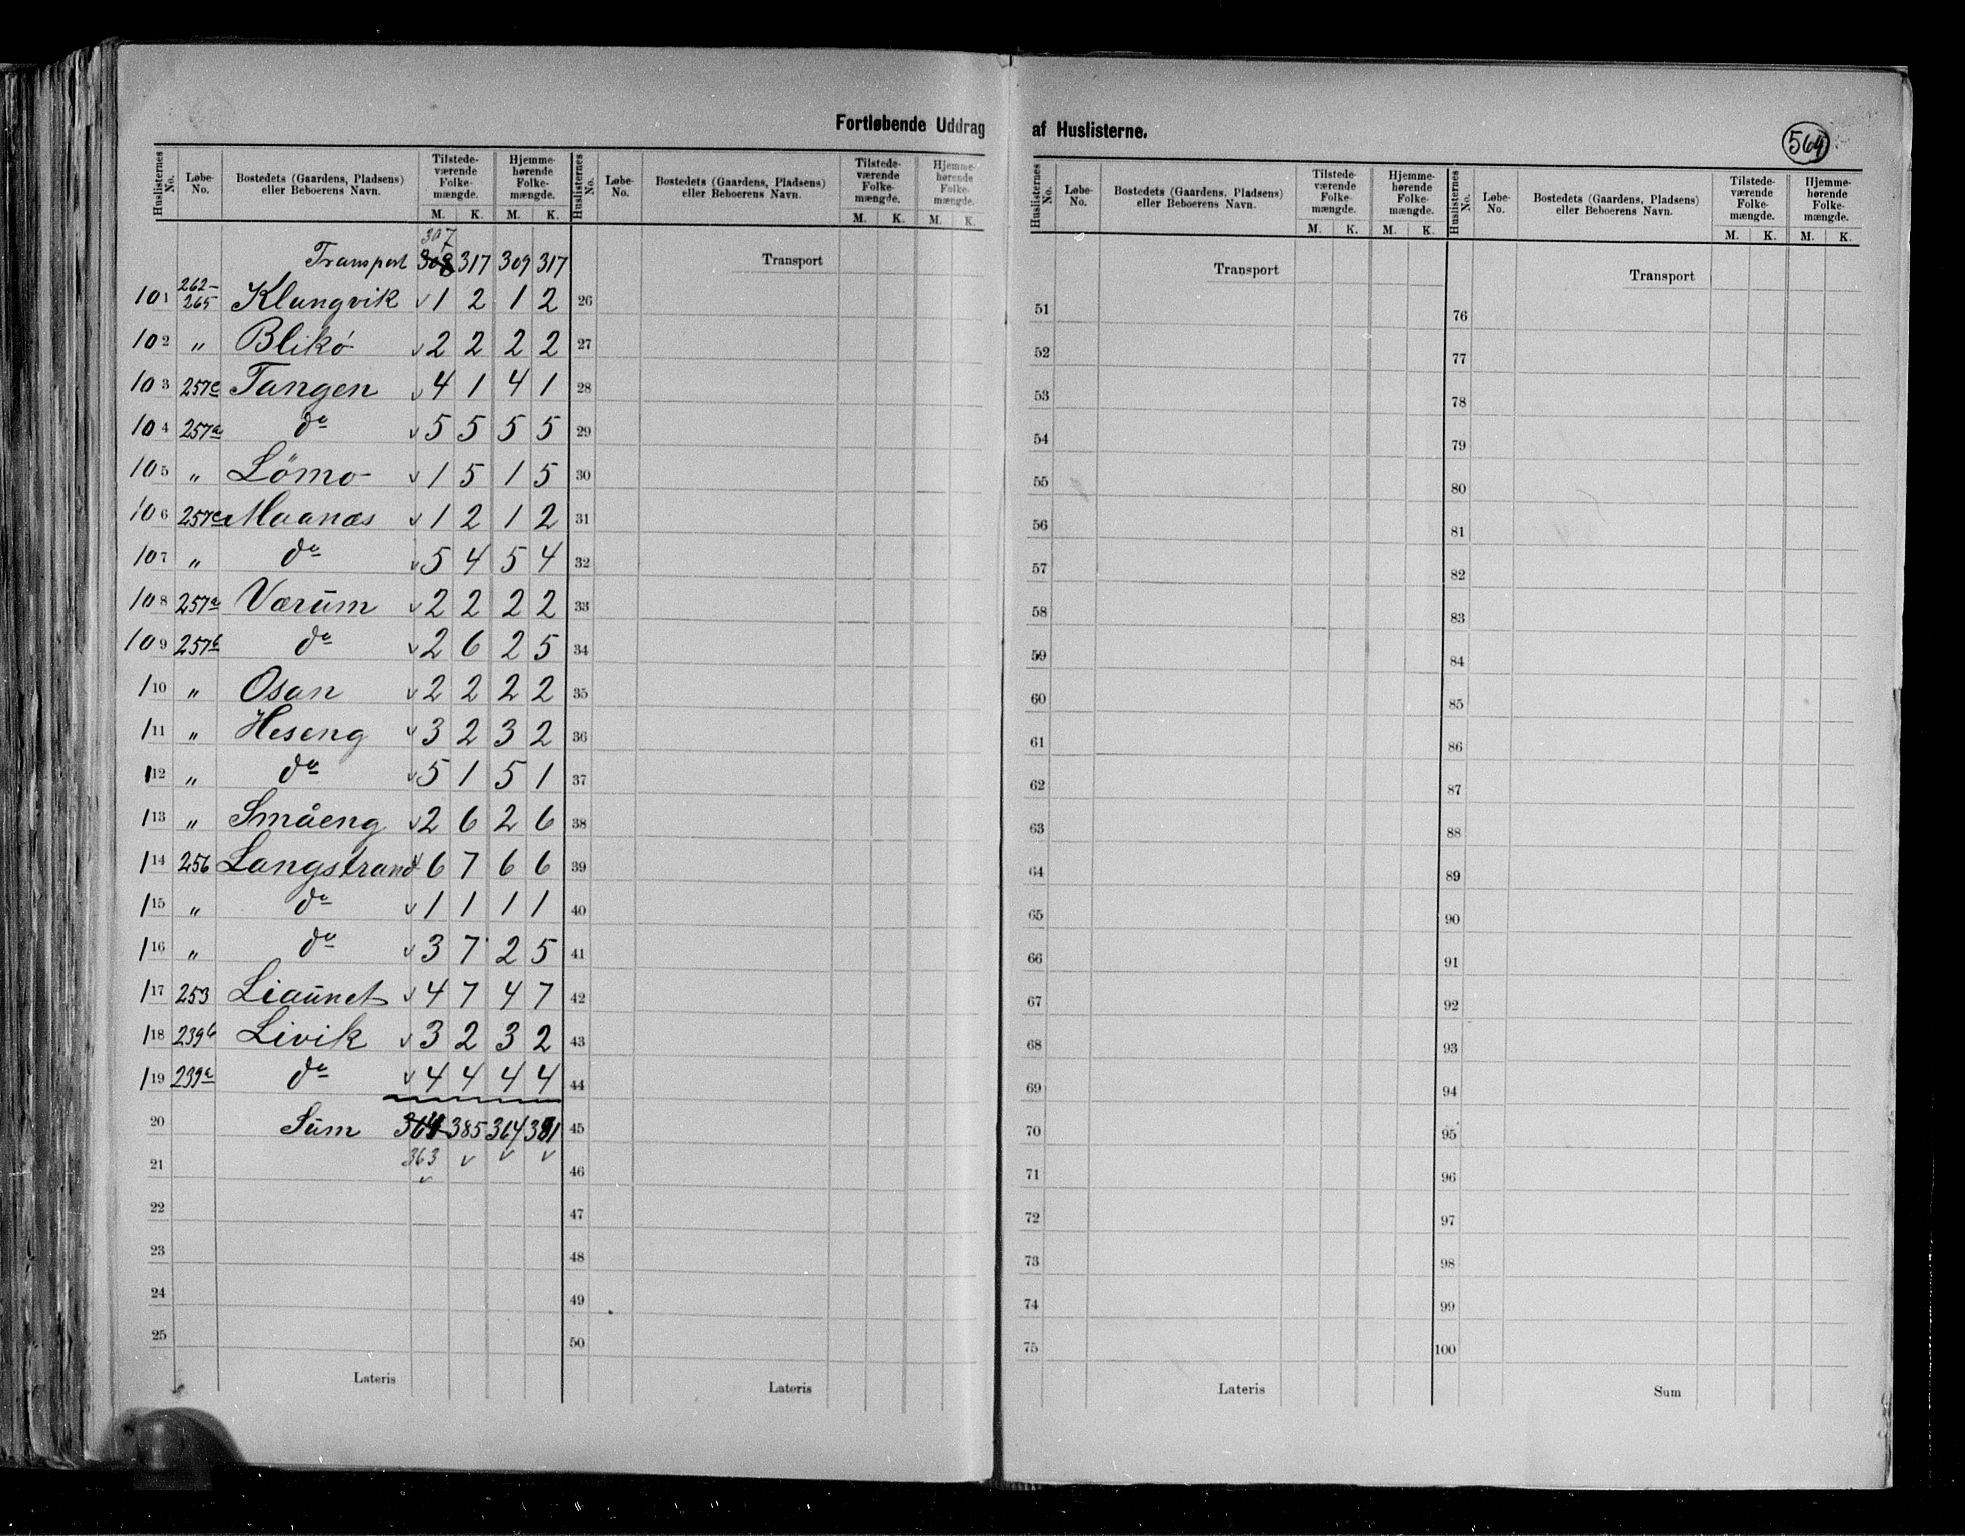 Fortløbende Uddrag af Huslisterne.
564
Huslisternes No. | Løbe-No. | Bostedets (Gaardens, Pladsens) eller Beboerens Navn. | Tilstedeværende Folkemængde. M. K. | Hjemmehørende Folkemængde. M. K.
307
Transport 308 317 309 317
101 262-265 Klungvik v 1 2 1 2
102 " Blikø v 2 2 2 2
103 257c Tangen v 4 1 4 1
104 257a do v 5 5 5 5
105 " Lömo v 1 5 1 5
106 257c Maanæs v 1 2 1 2
107 " do v 5 4 5 4
108 257a Værum v 2 2 2 2
109 257b do v 2 6 2 5
110 " Osan v 2 2 2 2
111 " Heseng v 3 2 3 2
112 " do v 5 1 5 1
113 " Småeng v 2 6 2 6
114 256 Langstrand v 6 7 6 6
115 " do v 1 1 1 1
116 " do v 3 7 2 5
117 253 Liaunet v 4 7 4 7
118 239b Livik v 3 2 3 2
119 239a do v 4 4 4 4
20 Sum 364 385 364 381
363 v v v
21 v
22
23
24
25
Lateris
Huslisternes No. | Løbe-No. | Bostedets (Gaardens, Pladsens) eller Beboerens Navn. | Tilstedeværende Folkemængde. M. K. | Hjemmehørende Folkemængde. M. K.
Transport
26
27
28
29
30
31
32
33
34
35
36
37
38
39
40
41
42
43
44
45
46
47
48
49
50
Lateris
Huslisternes No. | Løbe-No. | Bostedets (Gaardens, Pladsens) eller Beboerens Navn. | Tilstedeværende Folkemængde. M. K. | Hjemmehørende Folkemængde. M. K.
Transport
51
52
53
54
55
56
57
58
59
60
61
62
63
64
65
66
67
68
69
70
71
72
73
74
75
Lateris
Huslisternes No. | Løbe-No. | Bostedets (Gaardens, Pladsens) eller Beboerens Navn. | Tilstedeværende Folkemængde. M. K. | Hjemmehørende Folkemængde. M. K.
Transport
76
77
78
79
80
81
82
83
84
85
86
87
88
89
90
91
92
93
94
95
96
97
98
99
100
Sum